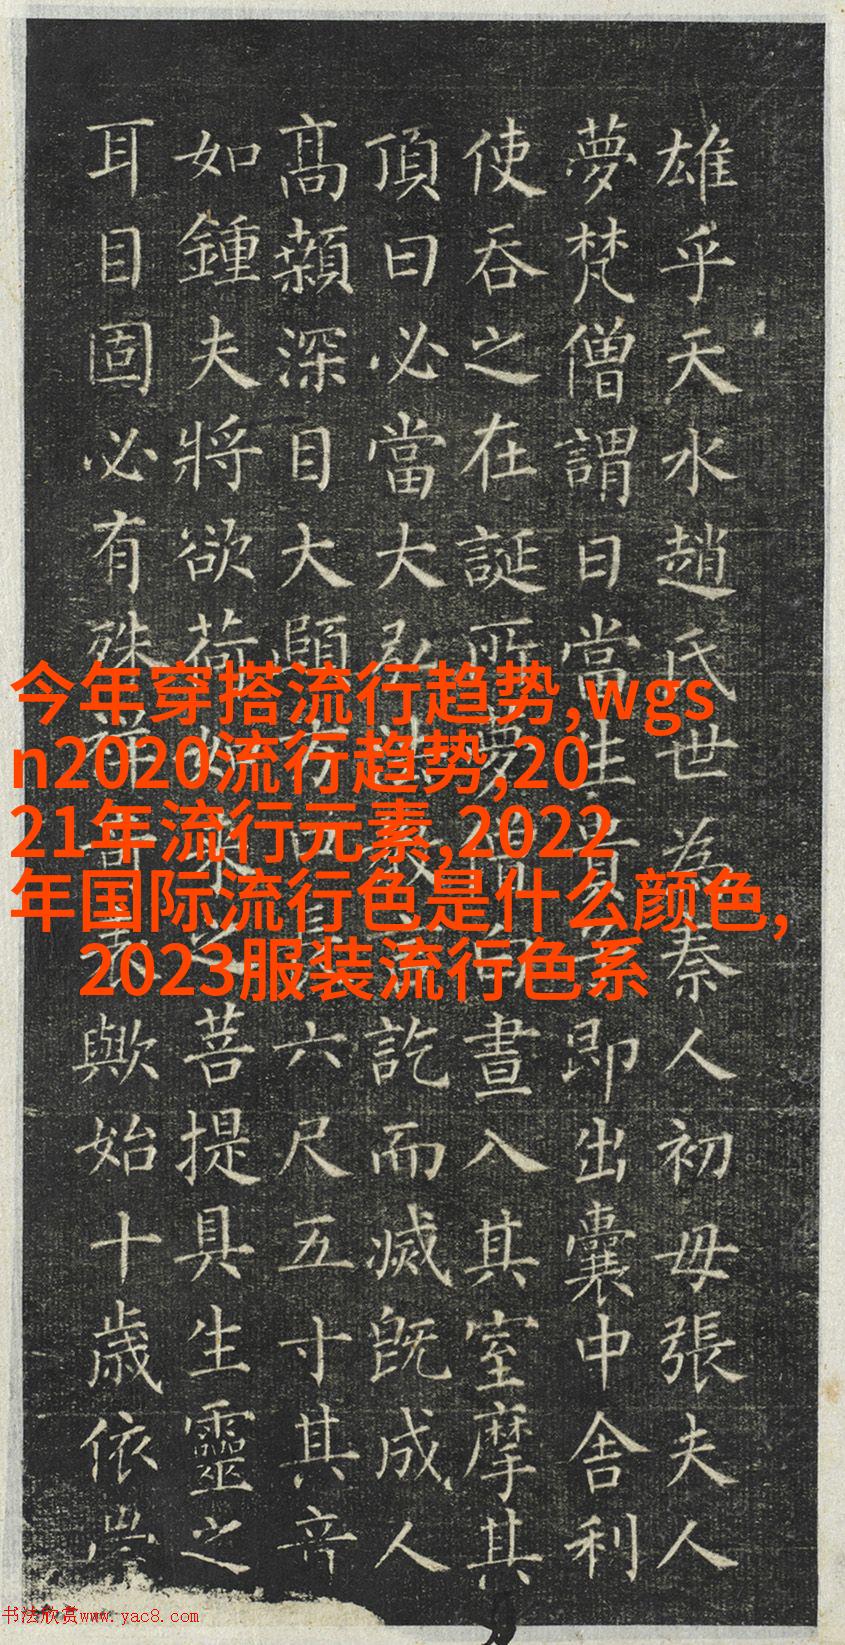 今年穿搭流行趋势,wgs
n2020流行趋势,20
21年流行元素,2022
年国际流行色是什么颜色,
2023服装流行色系
雄乎天水趙氏世為秦人初母張夫人
夢梵僧謂曰當生貴子即出囊中舍利
使吞之在誕所夢僧白晝入其室摩其
頂曰必當大弘法教訖而滅既成人
高顙深目大頤方口長六尺五寸其音
如鍾夫將欲荷如來之菩提具生靈之
耳目固必有殊祥奇表歟始十歲依
书法欣赏www.yac8.com